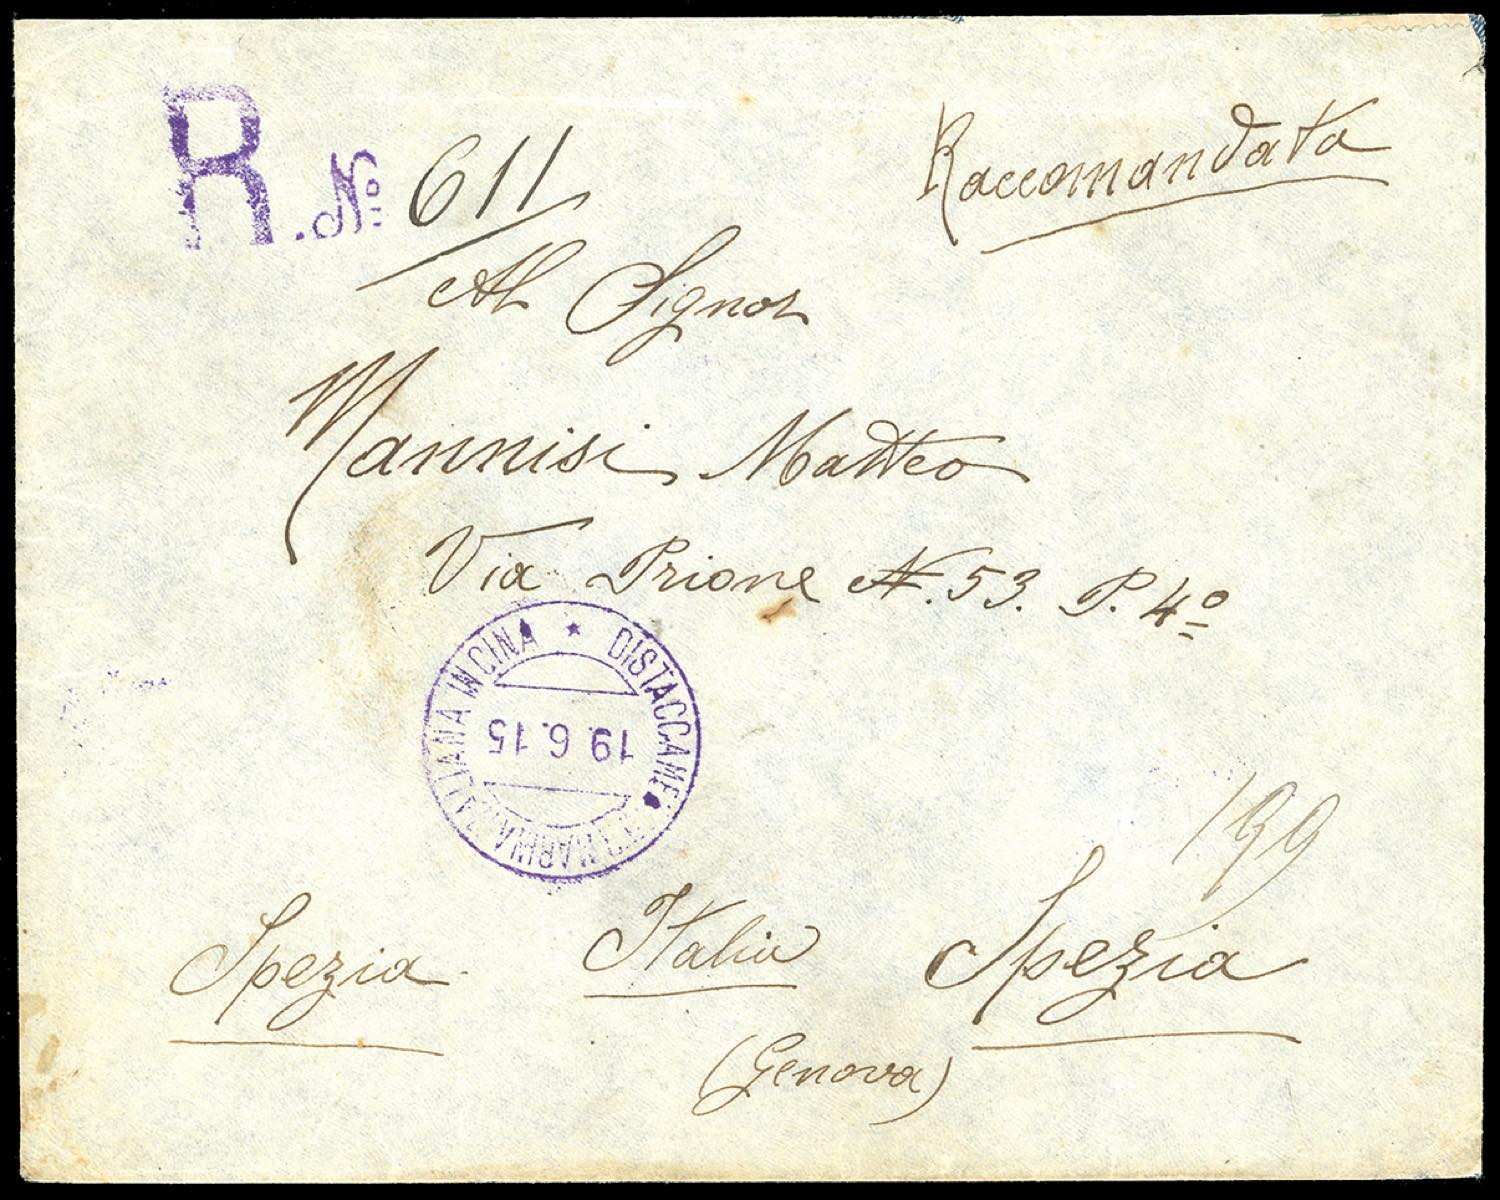 R. Nº 611
Raccomandata
Al Signor
Mannisi Matteo
Via Prione N. 53. P. 4º
DISTACCAME R. MARINA ITALIANA IN CINA *
19.6.15
199
Spezia Italia Spezia
(Genova)